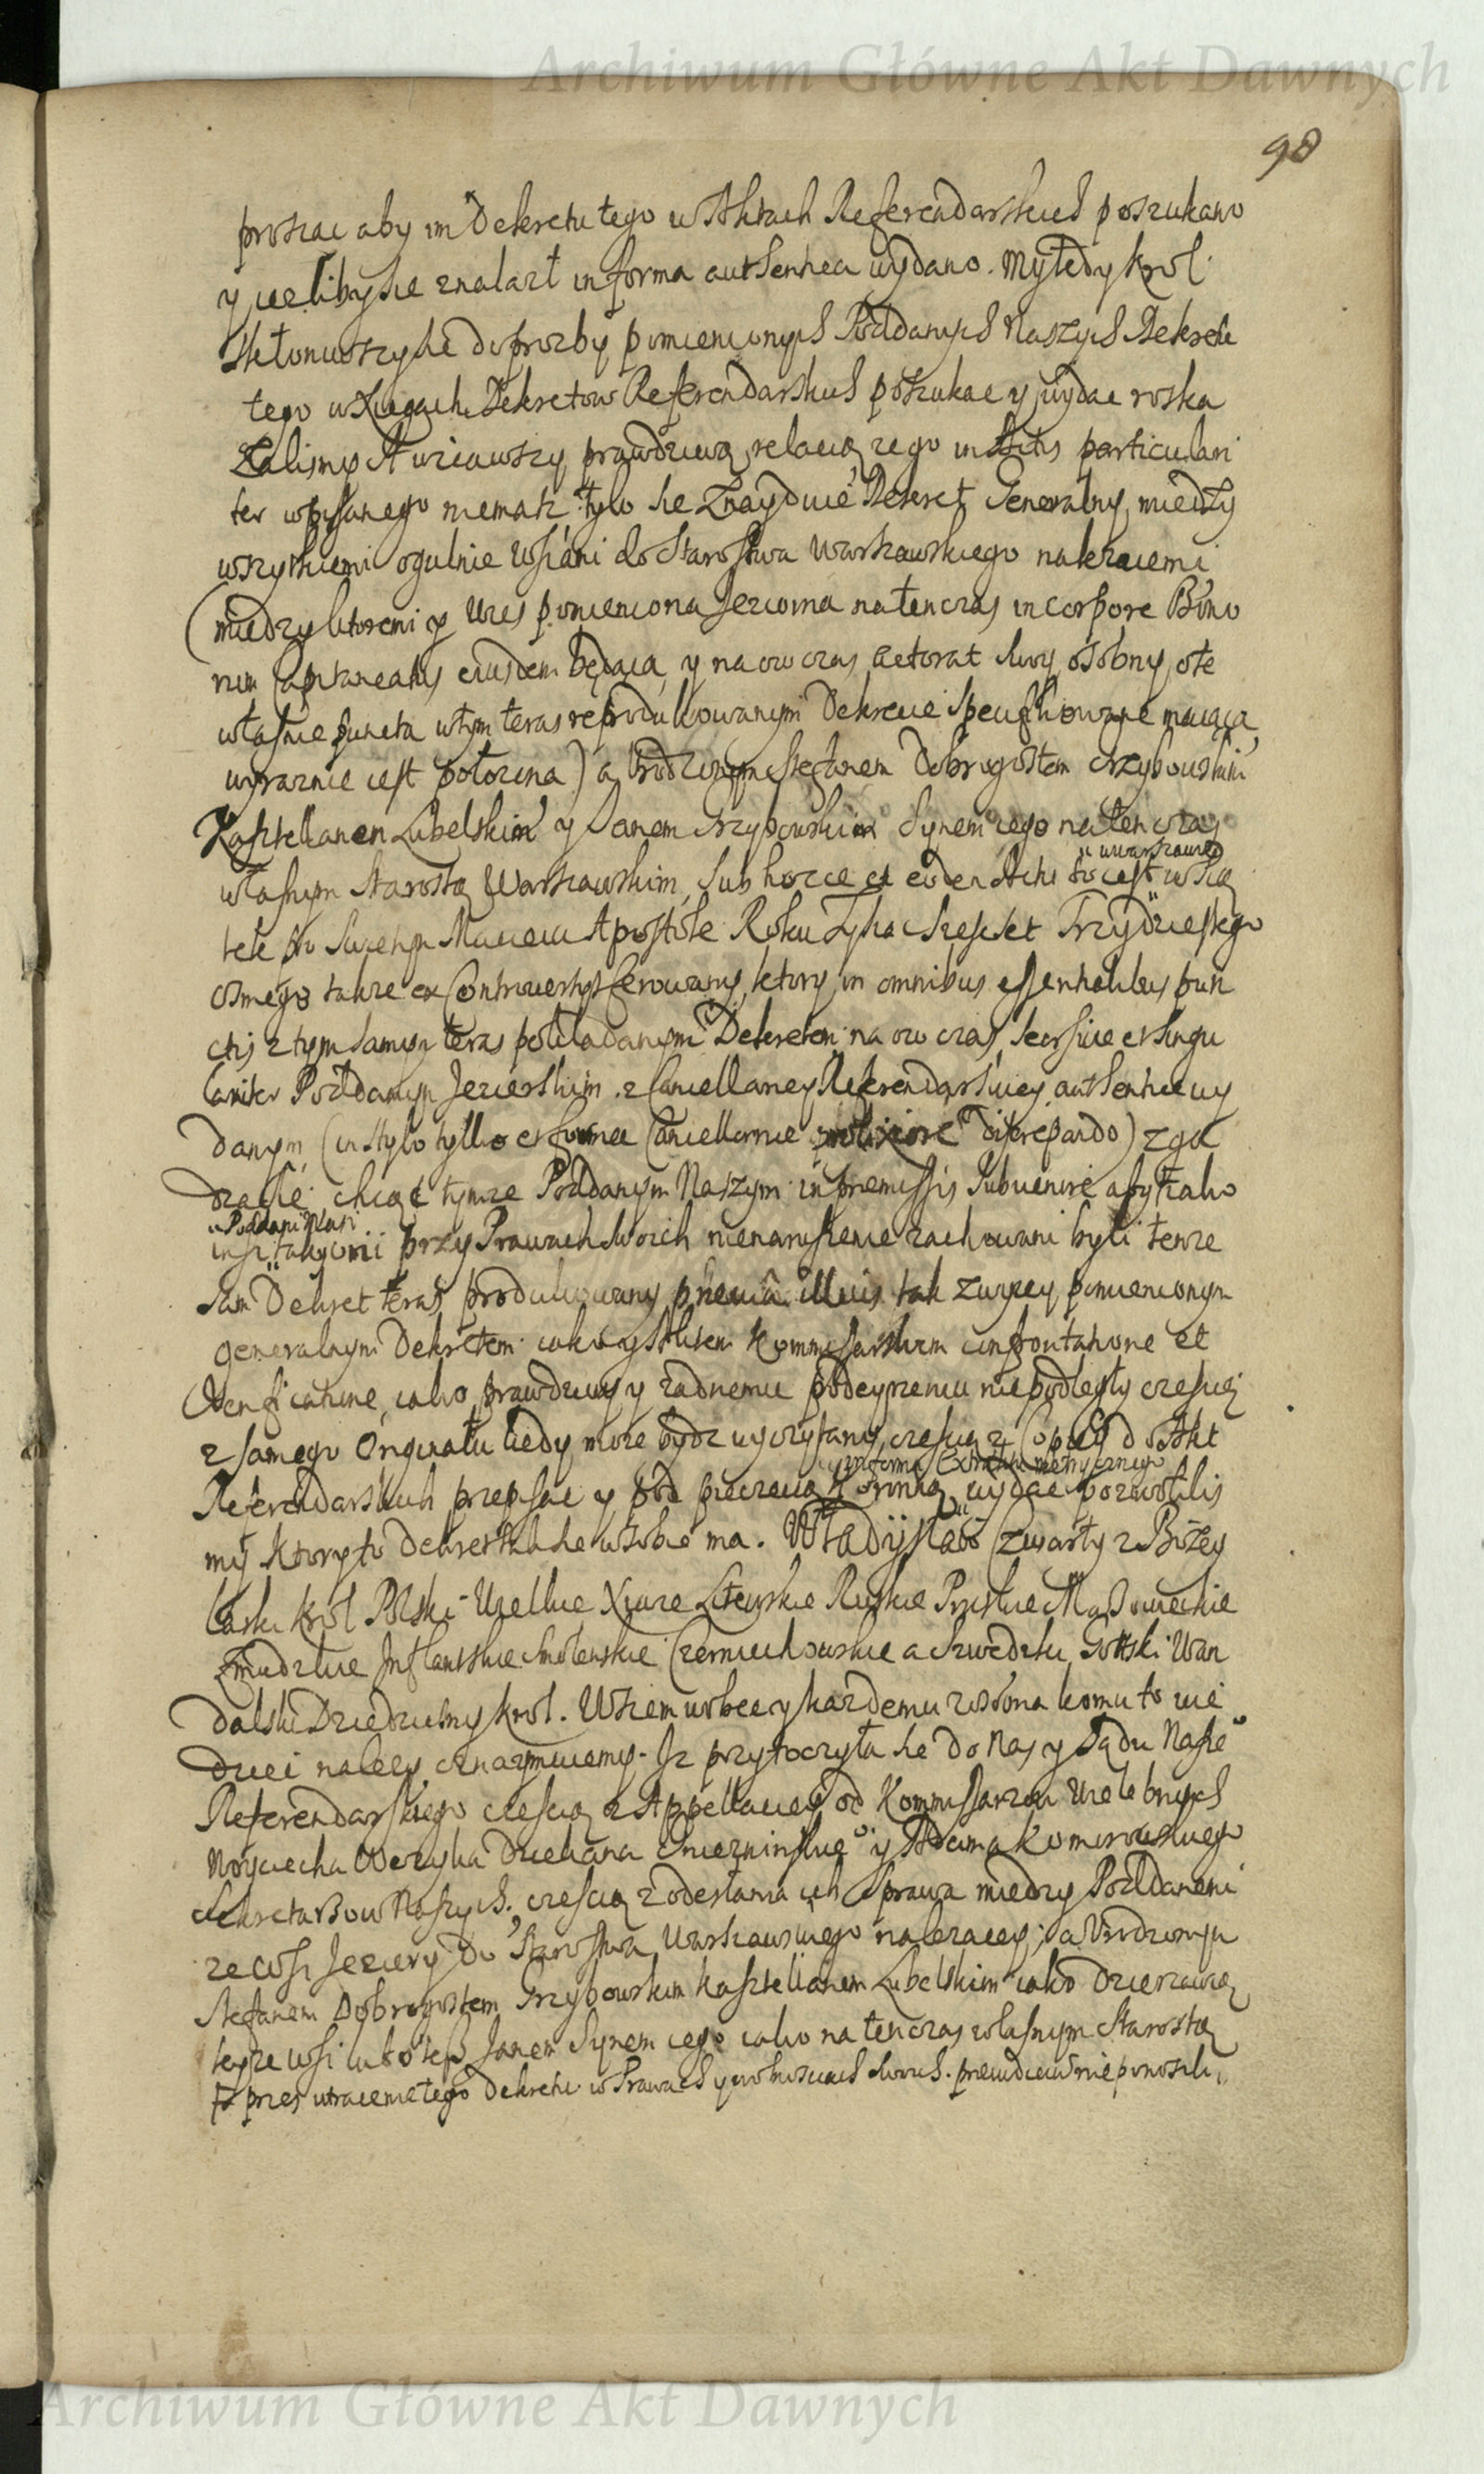 Archiwum Główne Akt Dawnych
98
prosząc aby im Dekretu tego w Aktach Referendarskich poszukano
y iezliby sie znalazł in forma authentica wydano. My tedy Krol
skłoniwszy sie do prozby pomienionych Poddanych Naszych Dekretu
tego w Xięgach Dekretow Referendarskich poszukac y wydac roska
zalismy A wziowszy prawdziwą relacią ze go in Actis particulari
ter wpisanego niemasz tylo sie znayduie Dekret Generalny miedzy
wszytkiemi ogulnie Wsiami do Starostwa Warszawskiego należącemi
(miedzy ktoremi y Wies pomieniona Jeziorna na ten czas in corpore Bono
rum Capitanealis eiusdem będąca y na ow czas actorat swoy osobny, ote
własnie puncta w tym teras reprodukowanym Dekrecie specifikowane maiąca
wyraznie iest połozona) a Urodzonym Stefanem Dobrogostem Grzybowskim
Kasztellanem Lubelskim y Janem Grzybowskim Synem iego na ten czas
własnym Starostą Warszawskim, sub hocce et eodem Actu to iest w Sią
w Warszawie
tek po Swietym Macieiu Apostole Roku Tysiac Szescset Trzydziestego
osmego takze ex Controversiis ferowany, ktory in omnibus essentialibus pun
ctis z tym samym teras pokładanym Dekretem na ow czas, seorsive et singu
lariter Poddanym Jezierskim z Cancellaryey Referendarskiey authentice wy
danym, (in stylo tylko et forma Cancellariae prolixiore discrepando) zga
dza sie: chcąc tymze Poddanym Naszym in premissis subvenire aby iako
w Poddani Nasi
insi takowi przy Prawach swoich nienaruszenie zachowani byli tenze
sam Dekret teras produkowany praevia illius tak zwyzey pomienionym
generalnym Dekretem iako y Aktem Kommisarskiem confrontatione et
Verificatione, iako prawdziwy y zadnemu podeyrzeniu niepodległy częscią
z samego Originału kiedy moze bydz wyczytany, częscią z Copiey do Akt
Referendarskich przepisac y pod pieczęcią Koronną wydac pozwolilis
in forma Extraktu metrycznego
my Ktoryto Dekret tak sie w sobie ma. Władysław Czwarty z Bozey
Łaski Krol Polski Wielkie Xiąze Litewskie Ruskie Pruskie Mazowieckie
Zmudzkie Inflantskie Smolenskie Czerniechowskie a Szwedzki Gottski Wan
dalski Dziedziczny Krol. Wszem wobec y kazdemu zosobna komu to wie
dziec nalezy oznaymuiemy. Iz przytoczyła sie do Nas y Sądu Nasze°
Referendarskiego częscią z Appellaciey od Kommissarzow Wielebnych
Woyciecha Wezyka Dziekana Gnieznienskie° y Adama Komorowskiego
Sekretarzow Naszych, częscią z odesłania ich Sprawa miedzy Poddanemi
ze Wsi Jeziory do Starostwa Warszawskiego nalezącey; a Urodzonym
Stefanem Dobrogostem Grzybowskim Kasztellanem Lubelskim iako Dzierzawcą
teyze Wsi iako też Janem Synem iego iako na ten czas własnym Starostą
przes utracenie tego Dekretu w Prawach y wolnosciach swoich praeiudicium nie ponosili,
Archiwum Główne Akt Dawnych